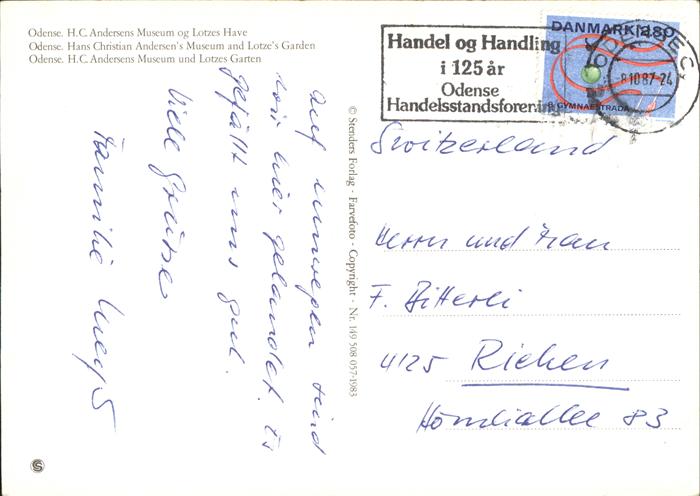 Odense. H.C. Andersens Museum og Lotzes Have
Odense. Hans Christian Andersen's Museum and Lotze's Garden
Odense. H.C. Andersens Museum und Lotzes Garten
Auf umwegen sind
wir hier gelandet. Es
gefällt uns gut.
Viele Grüsse
Familie
© Stenders Forlag - Farvefoto - Copyright - Nr. 149 508 057-1983
Handel og Handling
i 125 år
Odense
Handelsstandsforening
DANMARK 280
GYMNAESTRADA
ODENSE C
-8.10.87-24
Switzerland
Herrn und Frau
F. Bitterli
4125 Riehen
83
S